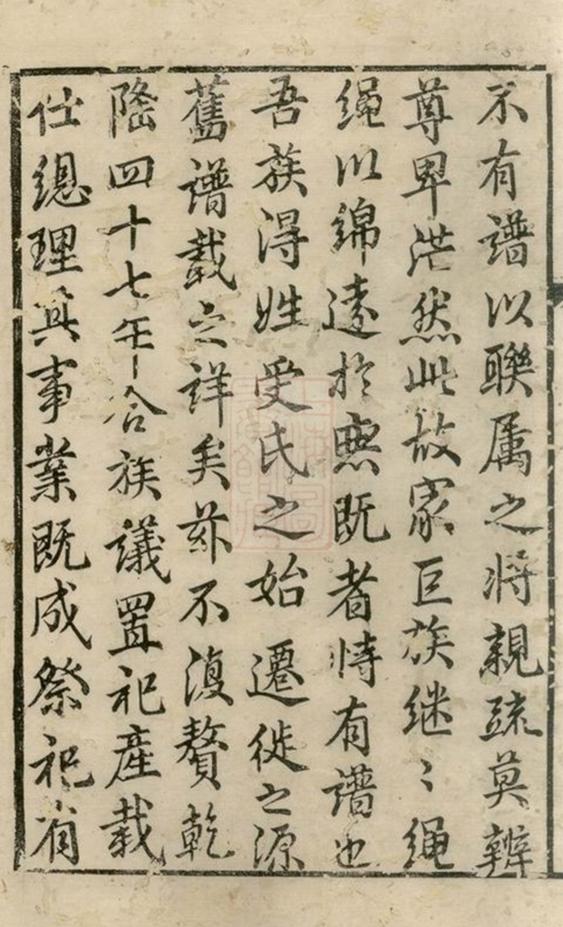 不有譜以聯属之将親疏莫辨
尊卑茫然此故家巨族継〻繩
繩以綿遠於無既者恃有譜也
吾族淂姓受氏之始遷徙之源
舊譜載之詳矣茲不復贅乾
隆四十七年合族議置祀產載
仕總理其事業既成祭祀有